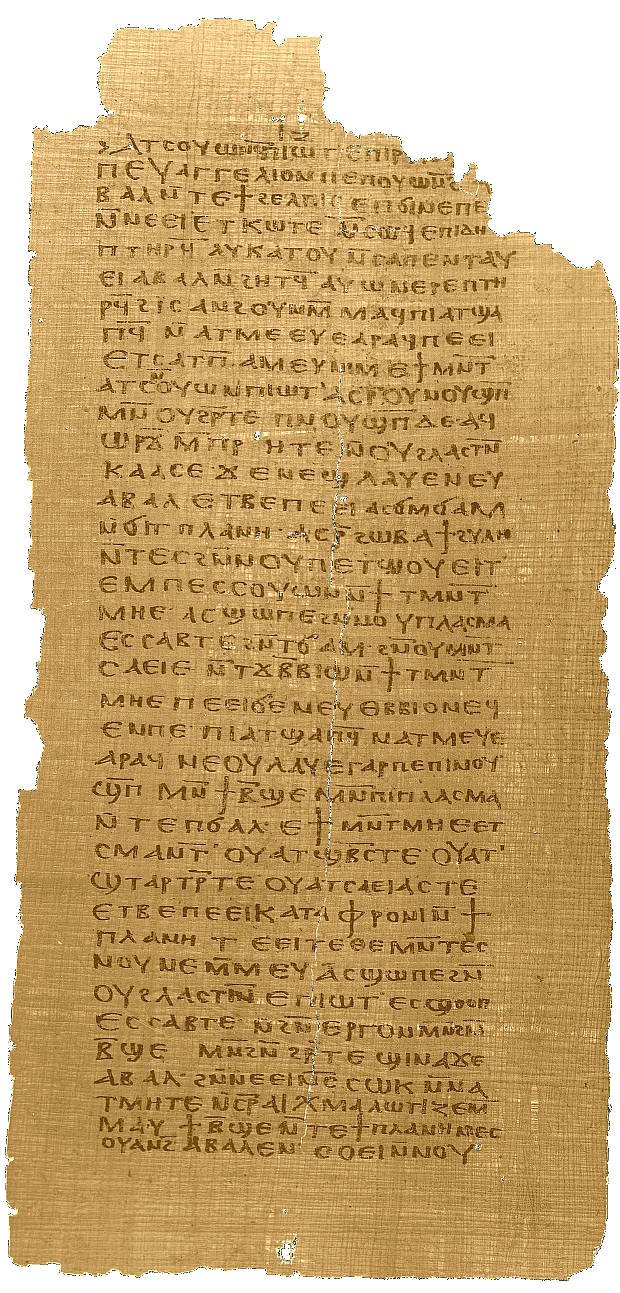 ϩⲁⲧⲥⲟⲩⲱⲛⲡⲓⲱⲧ ⲉⲡⲓⲣ
ⲡⲉⲩⲁⲅⲅⲉⲗⲓⲟⲛⲡⲉⲡⲟⲩⲱⲛϩ
ⲃⲁⲗⲛ̄ⲧⲉϯϩⲉⲗⲡⲓⲥ ⲉⲡϭⲓⲛⲉⲡⲉ
ⲛ̄ⲛⲉⲉⲓⲉⲧⲕⲱⲧⲉ ⲛ̄ⲥⲱϥⲉⲡⲓⲇⲏ
ⲡⲧⲏⲣϥ̄ ⲁⲩⲕⲁⲧⲟⲩ ⲛ̄ⲥⲁⲡⲉⲛⲧⲁⲩ
ⲉⲓ ⲁⲃⲁⲗⲛ̄ϩⲏⲧϥ̄ ⲁⲩⲱ ⲛⲉⲣⲉⲡⲧⲏ
ⲣϥ̄ϩⲓⲥⲁⲛϩⲟⲩⲛⲙ̄ⲙⲁϥⲡⲓⲁⲧϣⲁ
ⲡϥ̄ ⲛ̄ⲁⲧⲙⲉⲉⲩⲉⲁⲣⲁϥⲡⲉⲉⲓ
ⲉⲧⲥⲁⲧⲡ̄ ⲁⲙⲉⲩⲛⲓⲙ ⲉϯⲙⲛ̄ⲧ
ⲁⲧⲥⲟⲩⲱⲛⲡⲓⲱⲧ ⲁⲥⲣ̄ⲟⲩⲛⲟⲩϣⲡ̄
ⲙⲛ̄ ⲟⲩϩⲣ̄ⲧⲉ ⲡⲛⲟⲩϣⲡ̄ⲇⲉⲁϥ
ⲱⲣϫ̄ ⲙ̄ⲡⲣⲏⲧⲉ ⲛ̄ⲟⲩϩⲗⲁⲥⲧⲛ̄
ⲕⲁⲁⲥⲉ ϫⲉⲛⲉϣⲗⲁⲩⲉⲛⲉⲩ
ⲁⲃⲁⲗ ⲉⲧⲃⲉⲡⲉⲉⲓ ⲁⲥϭⲙϭⲁⲙ
ⲛ̄ϭⲓⲧⲡⲗⲁⲛⲏ ⲁⲥⲣ̄ϩⲱⲃ ⲁϯϩⲩⲗⲏ
ⲛ̄ⲧⲉⲥϩⲛ̄ⲛⲟⲩⲡⲉⲧϣⲟⲩⲉⲓⲧ
ⲉⲙⲡⲉⲥⲥⲟⲩⲱⲛⲛ̄ϯⲧⲙⲛ̄ⲧ
ⲙⲏⲉ ⲁⲥϣⲱⲡⲉϩⲛ̄ⲛⲟⲩⲡⲗⲁⲥⲙⲁ
ⲉⲥⲥⲁⲃⲧⲉ ϩⲛ̄ⲧϭⲁⲙ ϩⲛ̄ⲟⲩⲙⲛ̄ⲧ
ⲥⲁⲉⲓⲉ ⲛ̄ⲧϫⲃⲃⲓⲱⲛ̄ϯⲧⲙⲛ̄ⲧ
ⲙⲏⲉ ⲡⲉⲉⲓϭⲉⲛⲉⲩⲑⲃⲃⲓⲟⲛⲉϥ
ⲉⲛⲡⲉ ⲡⲓⲁⲧϣⲁⲡϥ̄ ⲛⲁⲧⲙⲉⲩⲉ
ⲁⲣⲁϥ ⲛⲉⲟⲩⲗⲁⲩⲉⲅⲁⲣⲡⲉⲡⲓⲛⲟⲩ
ϣⲡ̄ ⲙⲛ̄ϯⲃ̄ϣⲉⲙⲛ̄ⲡⲓⲡⲗⲁⲥⲙⲁ
ⲛ̄ⲧⲉⲡϭⲁⲗ ⲉϯⲙⲛ̄ⲧⲙⲏⲉⲉⲧ
ⲥⲙⲁⲛⲧ̄ ⲟⲩⲁⲧϣⲃⲥ̄ⲧⲉ ⲟⲩⲁⲧ
ϣⲧⲁⲣⲧⲣ̄ⲧⲉ ⲟⲩⲁⲧⲥⲁⲉⲓⲁⲥⲧⲉ
ⲉⲧⲃⲉⲡⲉⲉⲓⲕⲁⲧⲁⲫⲣⲟⲛⲓⲛ̄ϯ
ⲡⲗⲁⲛⲏ ⲧⲉⲉⲓⲧⲉⲑⲉⲙⲛ̄ⲧⲉⲥ
ⲛⲟⲩⲛⲉⲙ̄ⲙⲉⲩ ⲁⲥϣⲱⲡⲉϩⲛ̄
ⲟⲩϩⲗⲁⲥⲧⲛ̄ ⲉⲡⲓⲱⲧ ⲉⲥϣⲟⲟⲡ
ⲉⲥⲥⲁⲃⲧⲉ ⲛ̄ϩⲛ̄ⲉⲣⲅⲟⲛⲙⲛ̄ϩⲛ̄
ⲃ̄ϣⲉ ⲙⲛ̄ϩⲛ̄ϩⲣ̄ⲧⲉ ϣⲓⲛⲁϫⲉ
ⲁⲃⲁⲗ ϩⲛ̄ⲛⲉⲉⲓⲛⲉⲥⲱⲕ ⲛ̄ⲛⲁ
ⲧⲙⲏⲧⲉ ⲛ̄ⲥⲣ̄ⲁⲓⲭⲙⲁⲗⲱⲧⲓⲍⲉⲙ̄
ⲙⲁⲩ ϯⲃ̄ϣⲉⲛ̄ⲧⲉϯⲡⲗⲁⲛⲏⲛⲉⲥ
ⲟⲩⲁⲛϩ ⲁⲃⲁⲗⲉⲛ ⲥⲟⲉⲓⲛⲛⲟⲩ